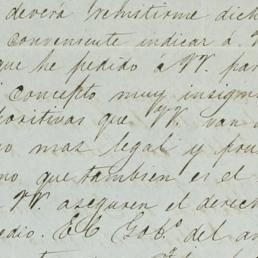 deverá remitirme dich
conveniente indicar á
que he pedido á VV. par
concepto muy insign
positivas que VV. van
mas legal y pru
no que tambien es el
VV. aseguren el derech
edio. El Gob.º del an